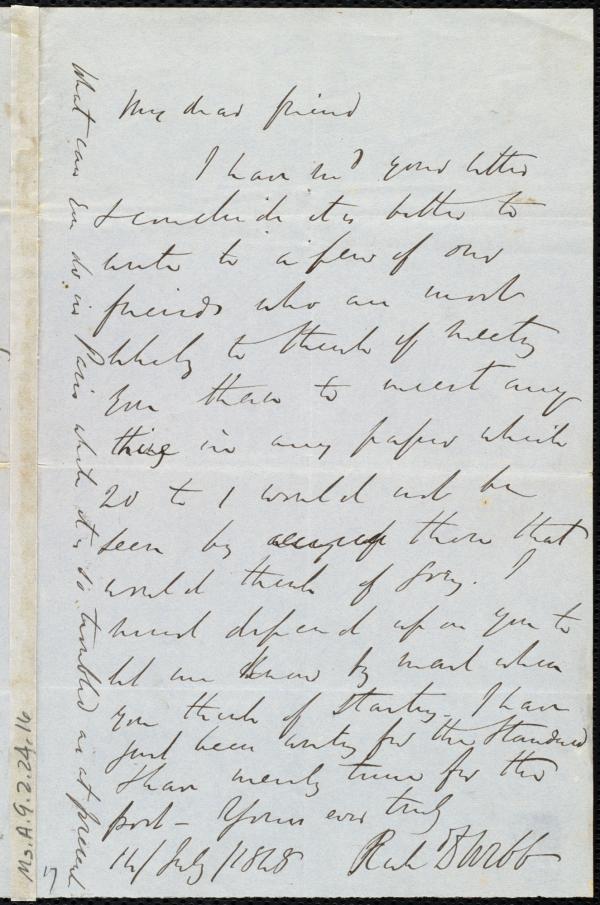 My dear friend
I have rec'd your letter
& conclude it is better to
write to a few of our
friends who are most
likely to think of meeting
you than to insert any
thing in any paper which
20 to 1 would not be
seen by those that
would think of going. I
must depend upon you to
let me know by mail when
you think of starting. I have
just been writing for the Standard
& have merely time for the
post - Yours ever truly
14/July/1848 Rich D Webb
What can you do in Paris while it is so troubled as at present
Ms.A.9.2.24.16
17